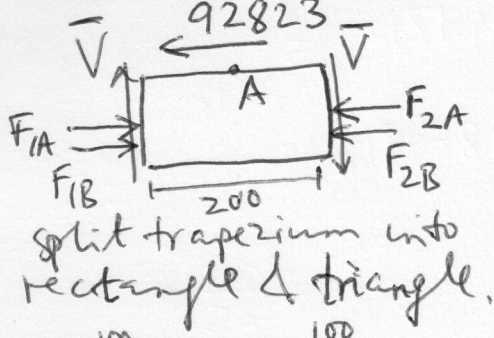 92823
V̄ V̄
A
F1A F2A
F1B F2B
200
split trapezium into
rectangle & triangle.
100